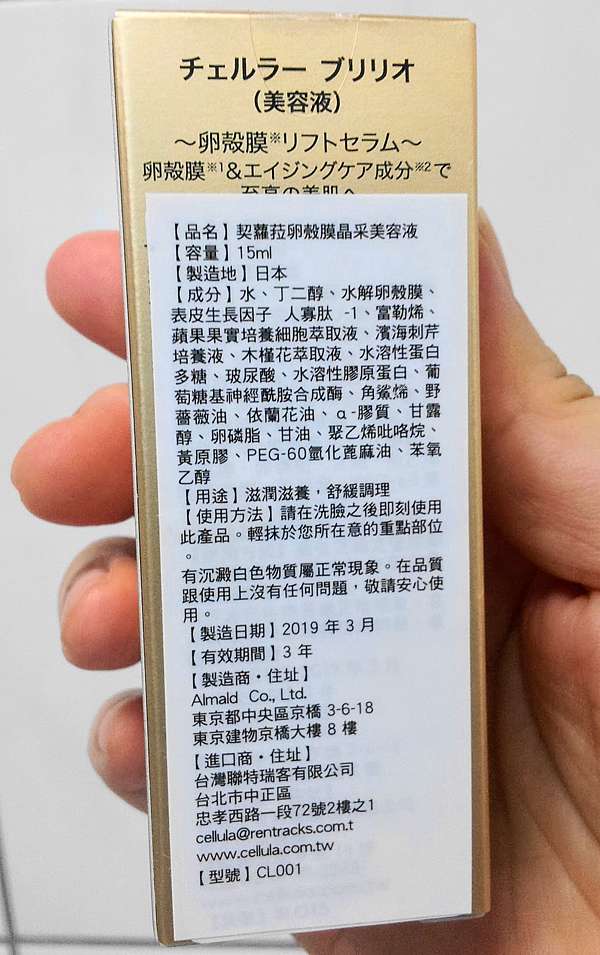 チェルラー ブリリオ
（美容液）
～卵殻膜※リフトセラム～
卵殻膜※1&エイジングケア成分※2で
至高の美肌へ
【品名】契蘿菈卵殼膜晶采美容液
【容量】15ml
【製造地】日本
【成分】水、丁二醇、水解卵殼膜、
表皮生長因子 人寡肽 -1、富勒烯、
蘋果果實培養細胞萃取液、濱海刺芹
培養液、木槿花萃取液、水溶性蛋白
多糖、玻尿酸、水溶性膠原蛋白、葡
萄糖基神經酰胺合成酶、角鯊烯、野
薔薇油、依蘭花油、α-膠質、甘露
醇、卵磷脂、甘油、聚乙烯吡咯烷、
黃原膠、PEG-60氫化蓖麻油、苯氧
乙醇
【用途】滋潤滋養，舒緩調理
【使用方法】請在洗臉之後即刻使用
此產品。輕抹於您所在意的重點部位
。
有沉澱白色物質屬正常現象。在品質
跟使用上沒有任何問題，敬請安心使
用。
【製造日期】2019 年 3 月
【有效期間】3 年
【製造商・住址】
Almald Co., Ltd.
東京都中央區京橋 3-6-18
東京建物京橋大樓 8 樓
【進口商・住址】
台灣聯特瑞客有限公司
台北市中正區
忠孝西路一段72號2樓之1
cellula@rentracks.com.t
www.cellula.com.tw
【型號】CL001